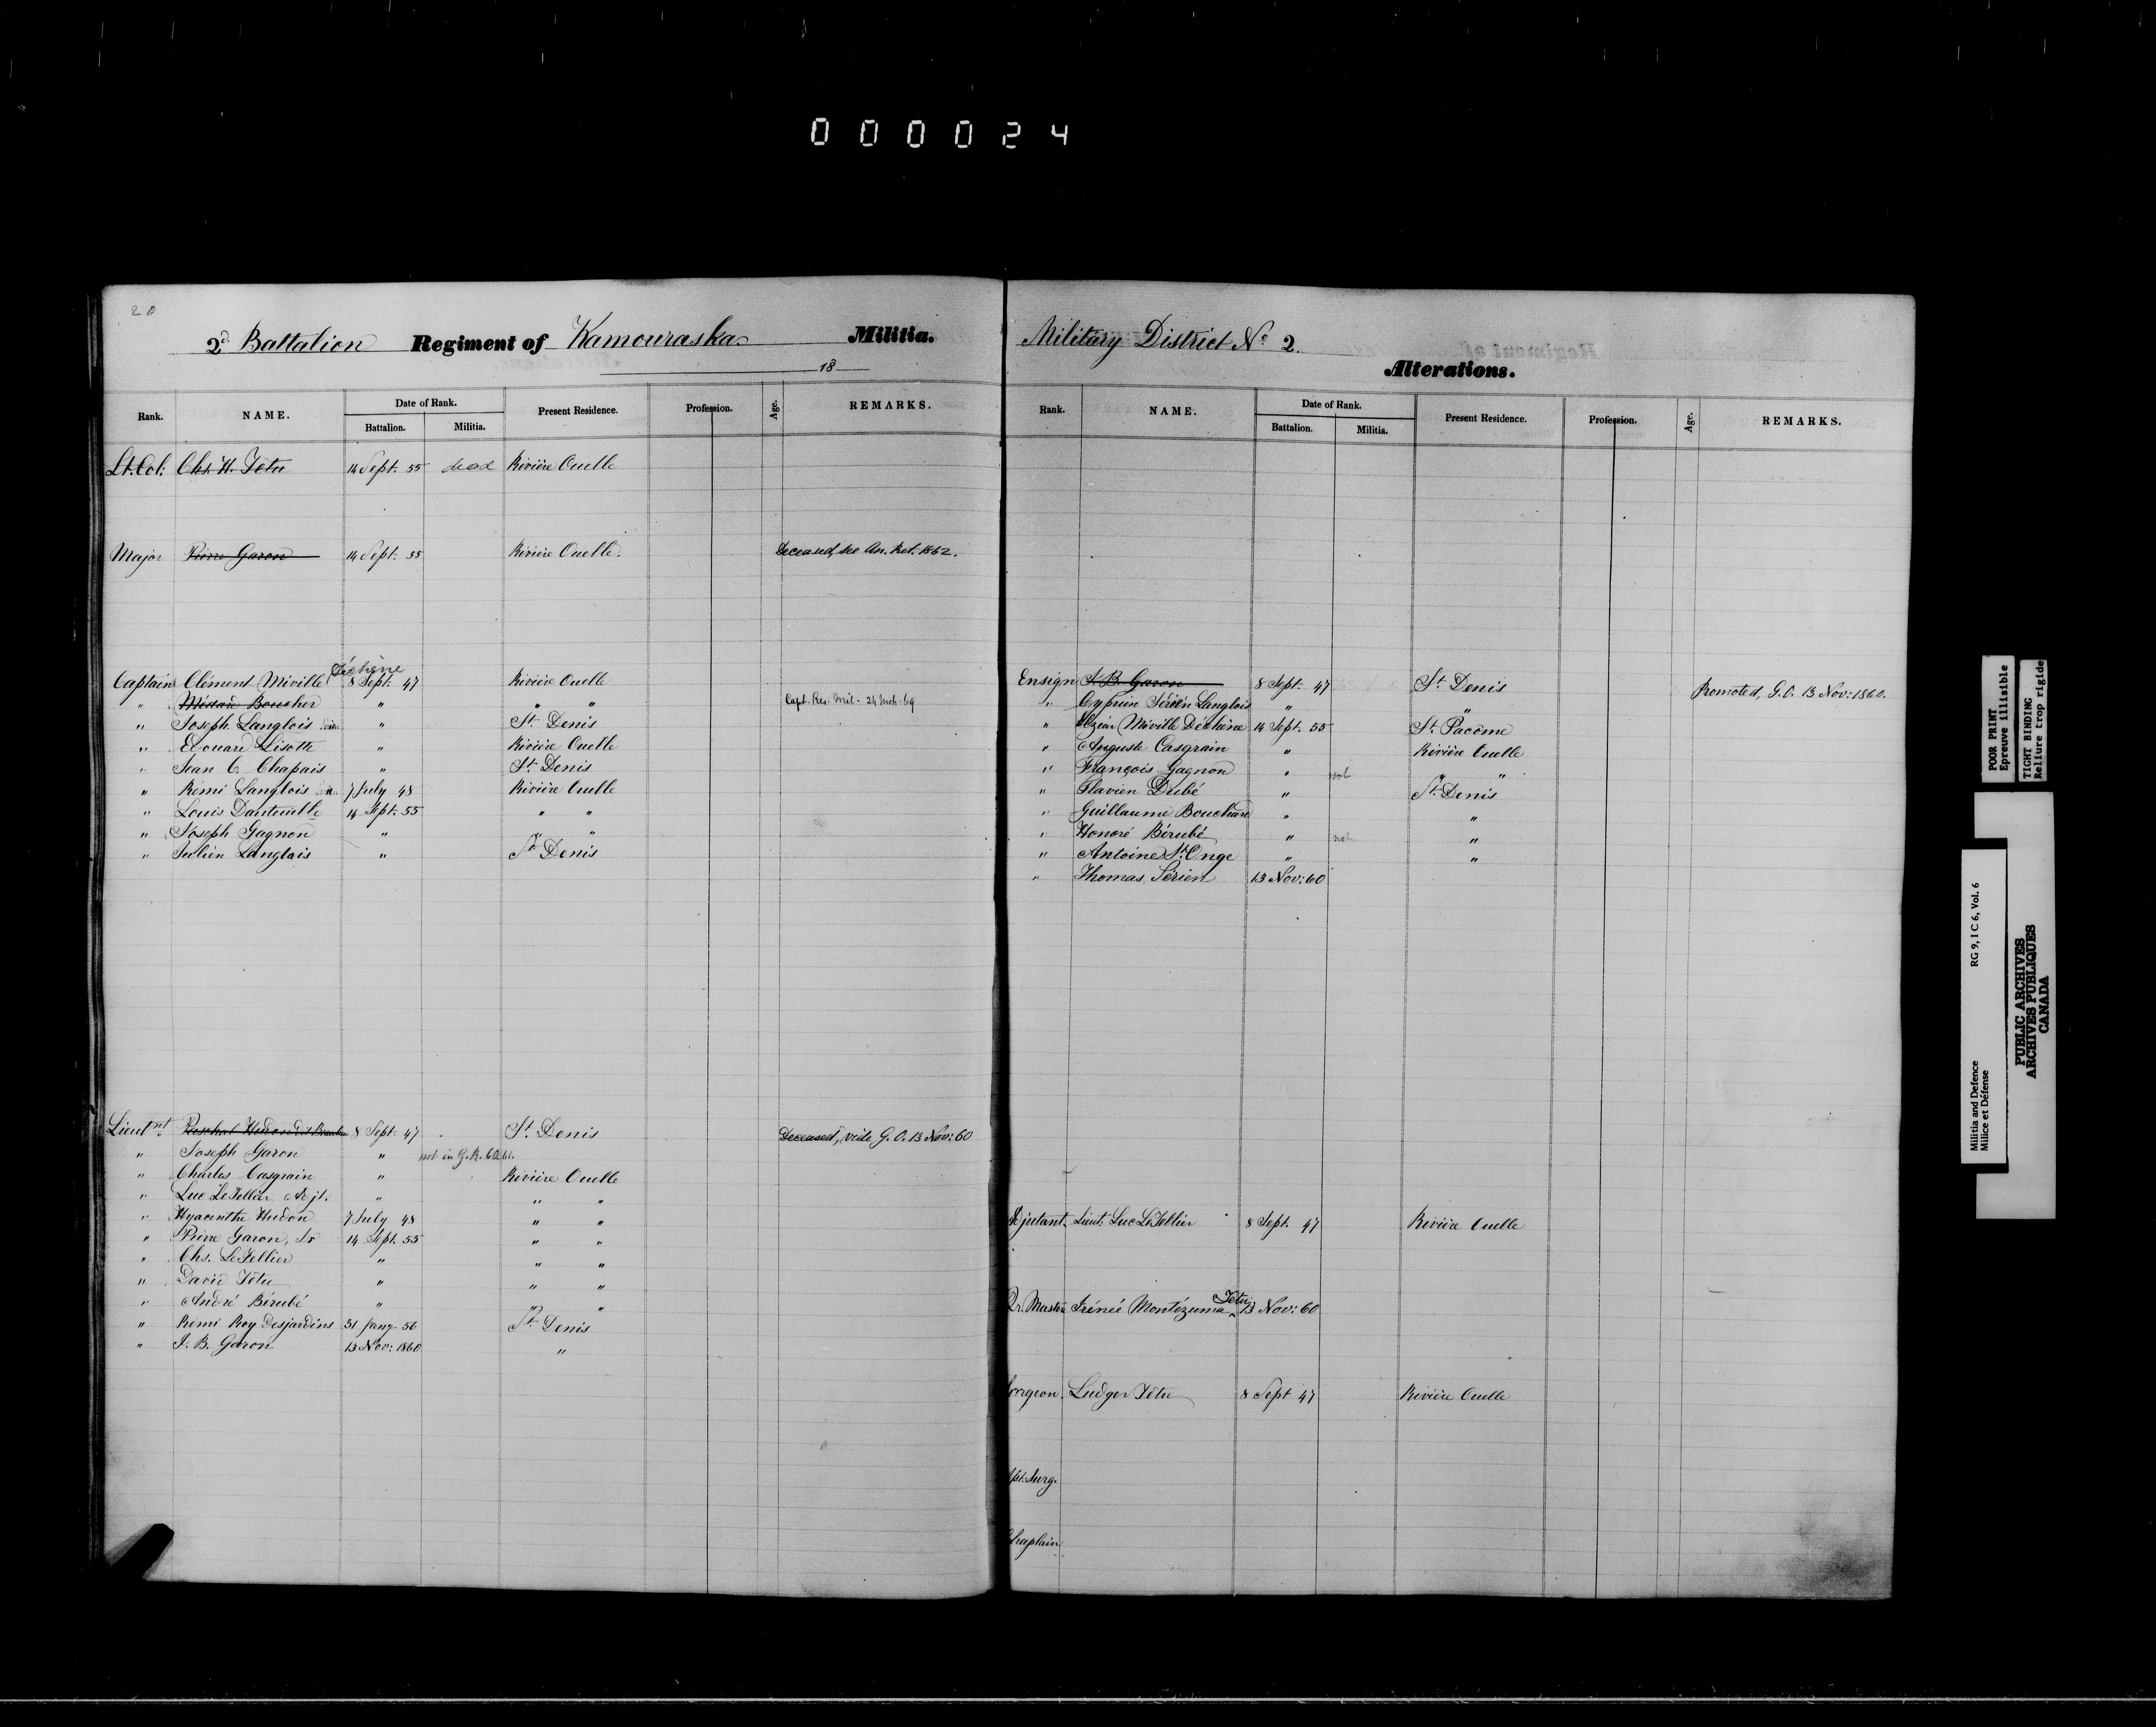 000024
20
2d Battalion Regiment of Kamouraska Militia.
18
Rank. NAME. Date of Rank. Present Residence. Profession. Age. REMARKS.
Battalion. Militia.
Lt. Col. Chs. H. Têtu 14 Sept. 55 dead Rivière Ouelle
Major Pierre Garon 14 Sept. 55 Rivière Ouelle. Deceased, see An. Ret. 1862.
Déchène
Captain Clément Miville 8 Sept. 47 Rivière Ouelle
" Médard Boucher " " " Capt. Res. Mil. - 24 Mch. 69
" Joseph Langlois " St. Denis
" Edouard Lisotte " Rivière Ouelle
" Jean C. Chapais " St. Denis
" Rémi Langlois 7 July 48 Rivière Ouelle
" Louis Dauteuille 14 Sept. 55 " "
" Joseph Gagnon " " "
" Julien Langlais " St. Denis
Lieutnt. Paschal Hudon dit 8 Sept. 47 St. Denis Deceased, vide G.O. 13 Nov: 60
" Joseph Garon " not in G.R. 60
" Charles Casgrain " Rivière Ouelle
" Luc LeTellier Adjt. " " "
" Hyacinthe Hudon 7 July 48 " "
" Pierre Garon, Jr 14 Sept. 55 " "
" Chs. LeTellier " " "
" David Têtu " " "
" André Bérubé " " "
" Rémi Roy Desjardins 31 Jany 56 St. Denis
" J. B. Garon 13 Nov: 1860 "
Military District No 2.
Alterations.
Rank. NAME. Date of Rank. Present Residence. Profession. Age. REMARKS.
Battalion. Militia.
Ensign J. B. Garon 8 Sept. 47 St. Denis Promoted, G.O. 13 Nov: 1860.
" Cyprien Langlois " "
" Elzéar Miville Déchène 14 Sept. 55 St. Pacôme
" Auguste Casgrain " Rivière Ouelle
" François Gagnon " not " "
" Flavien Dubé " St. Denis
" Guillaume Bouchard " "
" Honoré Bérubé " not "
" Antoine St. Onge " "
" Thomas Sérien 13 Nov: 60
Adjutant. Lieut. Luc LeTellier 8 Sept. 47 Rivière Ouelle
Têtu
Qr. Master Irénée Montézuma ^ 13 Nov: 60
Surgeon. Ludger Têtu 8 Sept 47 Rivière Ouelle
Asst. Surg.
Chaplain
POOR PRINT
Epreuve illisible
TIGHT BINDING
Reliure trop rigide
Militia and Defence RG 9, I C 6, Vol. 6
Milice et Défense
PUBLIC ARCHIVES
ARCHIVES PUBLIQUES
CANADA